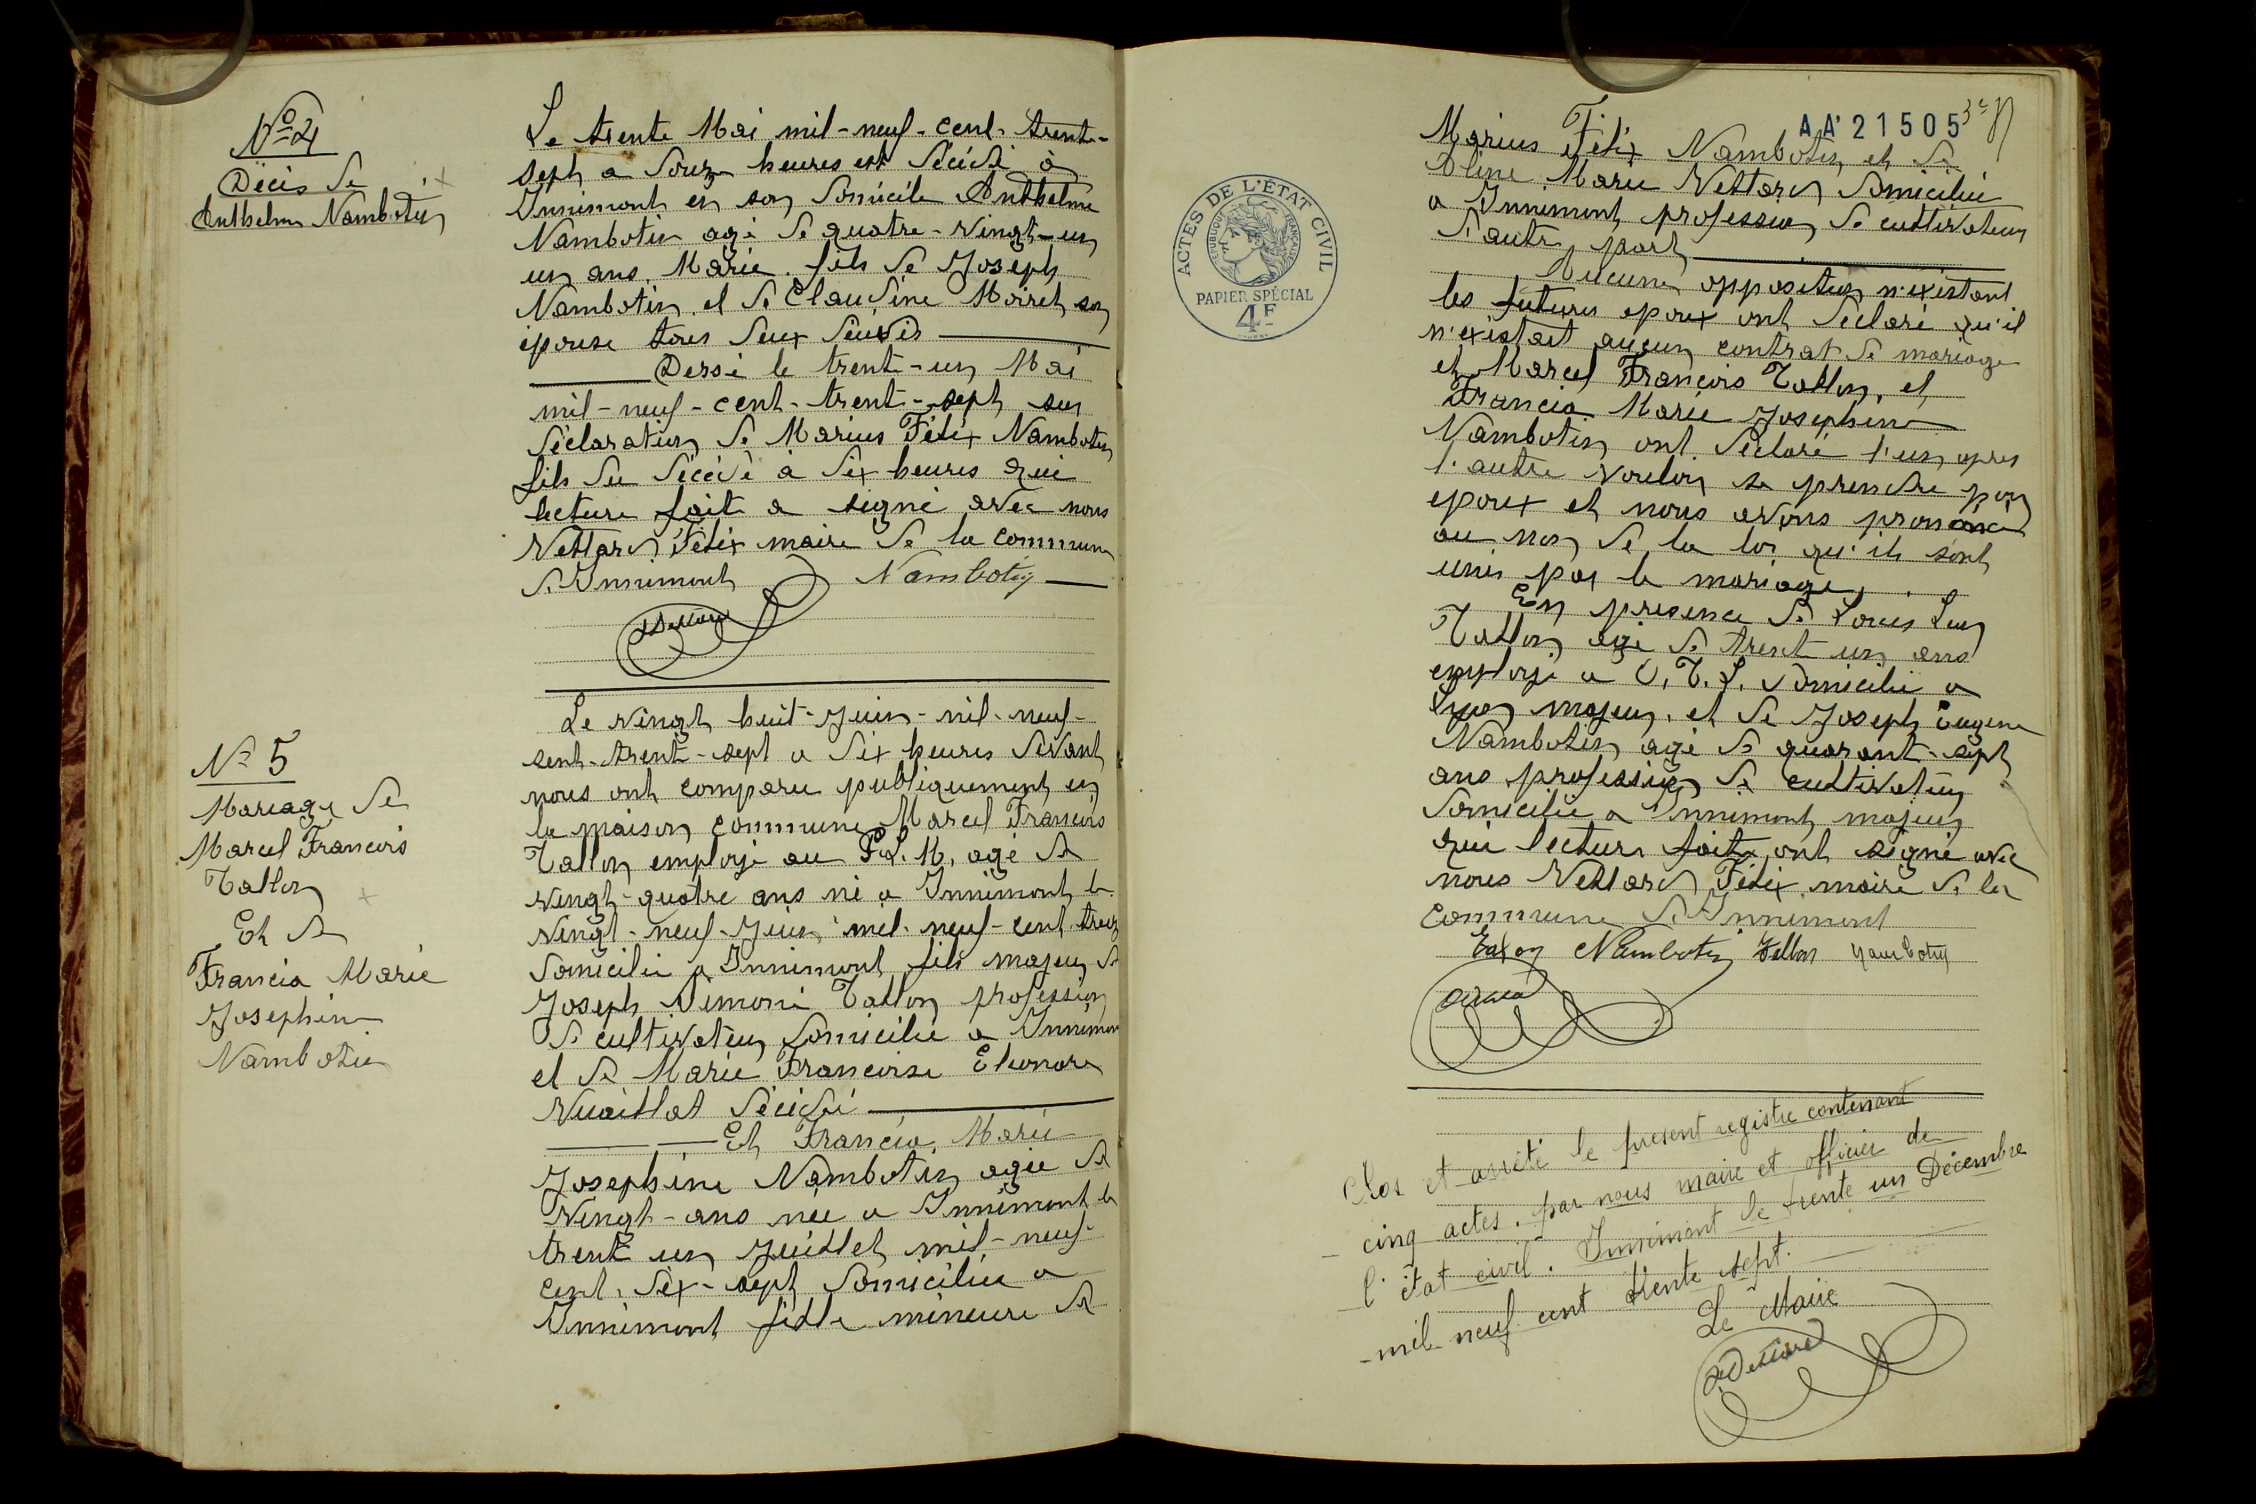 N° 4
Décès de
Anthelme Nambotin
Le trente Mai mil-neuf-cent-trente-
sept a douze heures est décédé à
Innimont en son domicile Anthelme
Nambotin agé de quatre-vingt-un
un ans. Marié. fils de Joseph
Nambotin et de Claudine Moiret son
épouse tous deux
Dersé le trent-un Mai
mil-neuf-cent-trent-sept sur
déclaration de Marius Félix Nambotin
fils du décédé à dix heures qui
lecture fait a signé avec nous
Félix maire de la commune
d'Innimont Nambotin
N° 5
Mariage de
Marcel Francois
Tallon
Et de
Francia Marie
Josephine
Nambotin
Le vingt huit-Juin-mil-neuf-
cent-trent-sept a dix heures devant
nous ont comparu publiquement en
la maison commune Marcel Francois
Tallon employé au P.L.M. agé de
vingt-quatre ans né a Innimont le
vingt-neuf-Juin mil-neuf-cent treize
domicilié a Innimont fils majeur de
Joseph Tallon profession
de cultivateur domicilié a Innimont
et de Marie Francoise Eleonore
Vuaillat décédé
Et Francia Marie
Josephine Nambotin agée de
Vingt-ans née a Innimont le
trent un Juillet mil-neuf-
cent-dix-sept domiciliée a
Innimont fille mineure de
AA 21505
ACTES DE L'ÉTAT CIVIL
RÉPUBLIQUE FRANÇAISE
PAPIER SPÉCIAL
4F
Marius Félix Nambotin et de
Marie domicilié
a Innimont profession de cultivateur
d'autre part
Aucune opposition n'existant
les futurs epoux ont déclaré qu'il
n'existait aucun contrat de mariage
et Marcel Francois Tallon, et
Francia Marie Josephine
Nambotin ont déclaré l'un apres
l'autre vouloir se prendre pour
epoux et nous avons prononcé
au nom de la loi qu'ils sont
unis par le mariage
En presence de Louis
Tallon agé de trent un ans
employé a O.T.L. domicilié a
Lyon majeur, et de Joseph Eugene
Nambotin agé de quarant-sept
ans profession de cultivateur
domicilié a Innimont majeur
qui lecture faite ont signé avec
nous Félix maire de la
commune d'Innimont
Tallon Nambotin Tallon Nambotin
Clos et arrêté le présent registre contenant
cinq actes. par nous maire et officier de
l'état civil. Innimont le trente un Décembre
mil neuf cent trente sept.
Le Maire